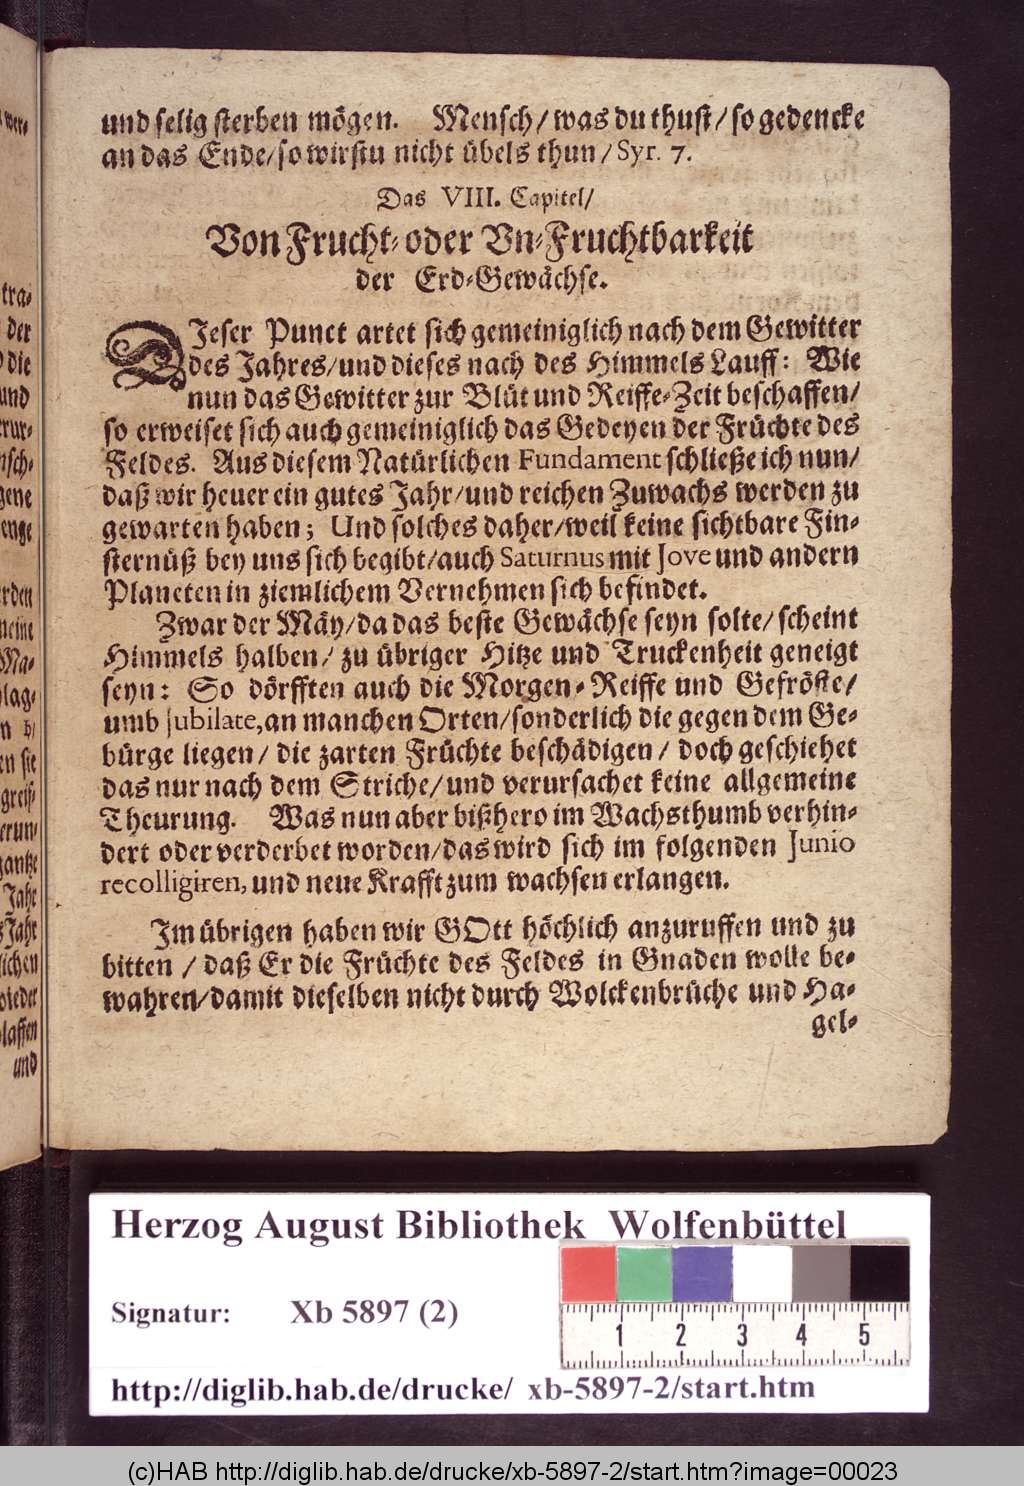 und selig sterben mögen. Mensch/ was du thust/ so gedencke
an das Ende/ so wirstu nicht übels thun/ Syr. 7.
Das VIII. Capitel/
Von Frucht- oder Vn-Fruchtbarkeit
der Erd-Gewächse.
DIeser Punct artet sich gemeiniglich nach dem Gewitter
des Jahres/ und dieses nach des Himmels Lauff: Wie
nun das Gewitter zur Blüt und Reiffe-Zeit beschaffen/
so erweiset sich auch gemeiniglich das Gedeyen der Früchte des
Feldes. Aus diesem Natürlichen Fundament schließe ich nun/
daß wir heuer ein gutes Jahr/ und reichen Zuwachs werden zu
gewarten haben; Und solches daher/ weil keine sichtbare Fin-
sternüß bey uns sich begibt/ auch Saturnus mit Jove und andern
Planeten in ziemlichem Vernehmen sich befindet.
Zwar der Mäy/ da das beste Gewächse seyn solte/ scheint
Himmels halben/ zu übriger Hitze und Truckenheit geneigt
seyn: So dörfften auch die Morgen-Reiffe und Gefröste/
umb Jubilate, an manchen Orten/ sonderlich die gegen dem Ge-
bürge liegen/ die zarten Früchte beschädigen/ doch geschiehet
das nur nach dem Striche/ und verursachet keine allgemeine
Theurung. Was nun aber bißhero im Wachsthumb verhin-
dert oder verderbet worden/ das wird sich im folgenden Junio
recolligiren, und neue Krafft zum wachsen erlangen.
Im übrigen haben wir GOtt höchlich anzuruffen und zu
bitten / daß Er die Früchte des Feldes in Gnaden wolle be-
wahren/ damit dieselben nicht durch Wolckenbrüche und Ha-
gel-
tra-
der
die
und
gene
enge
rden
meine
Ma-
lag-
gantze
Jahr
Jahr
lichen
wieder
lassen
und
Herzog August Bibliothek Wolfenbüttel
Signatur: Xb 5897 (2)
1 2 3 4 5
http://diglib.hab.de/drucke/ xb-5897-2/start.htm
(c)HAB http://diglib.hab.de/drucke/xb-5897-2/start.htm?image=00023